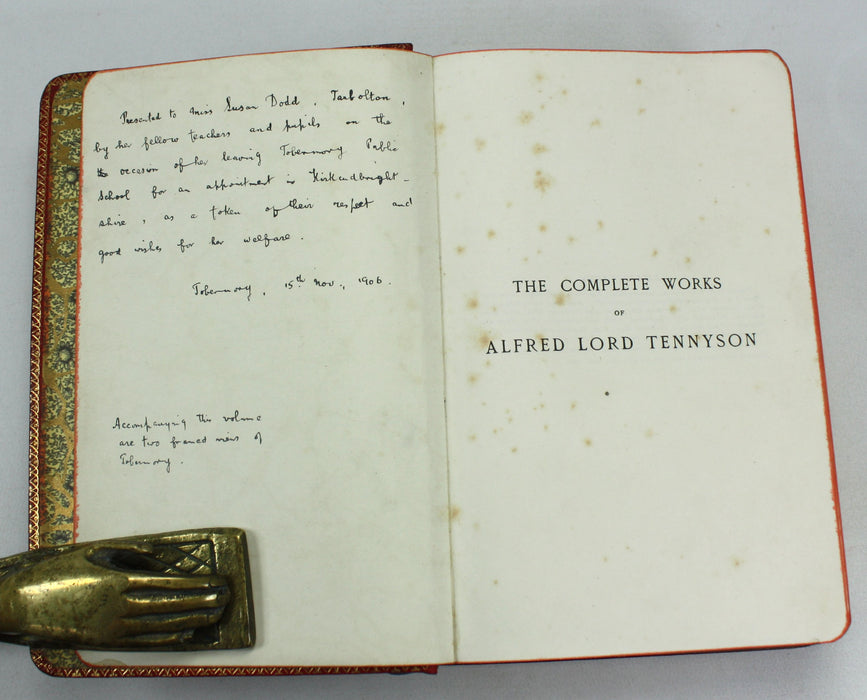 Presented to Miss Susan Dodd, Tarbolton,
by her fellow teachers and pupils on the
occasion of her leaving Tobermory Public
School for an appointment in Kirkcudbright-
shire, as a token of their respect and
good wishes for her welfare.
Tobermory, 15th Nov., 1906.
Accompanying this volume
are two framed views of
Tobermory.
THE COMPLETE WORKS
OF
ALFRED LORD TENNYSON